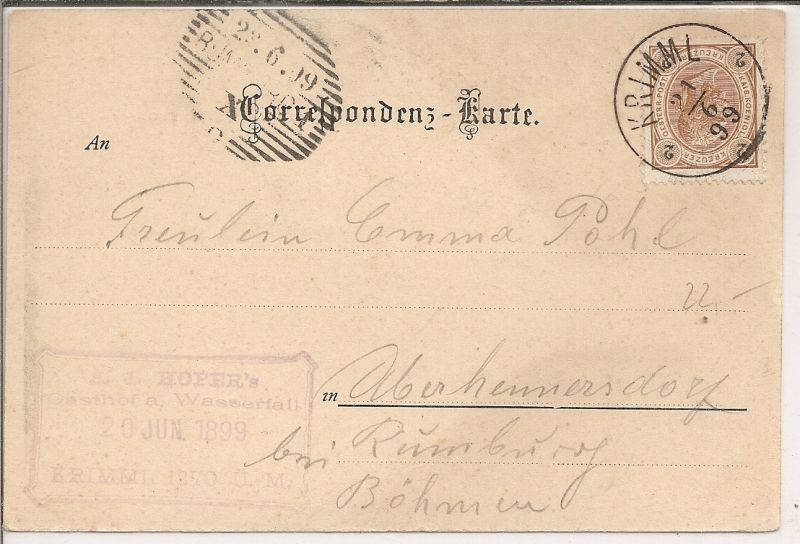 23.6.99
Correspondenz-Karte.
KRIMML
21/6
99
2 2
KREUZER
KAIS. KÖNIGL.
OESTERR. POST
KREUZER
2 2
An
Freulein Emma Pohl
in Oberhennersdorf
bei Rumburg
Böhmen
A. J. HOFER's
Gasthof a. Wasserfall
20 JUN. 1899
KRIMML 1070 Ü. M.